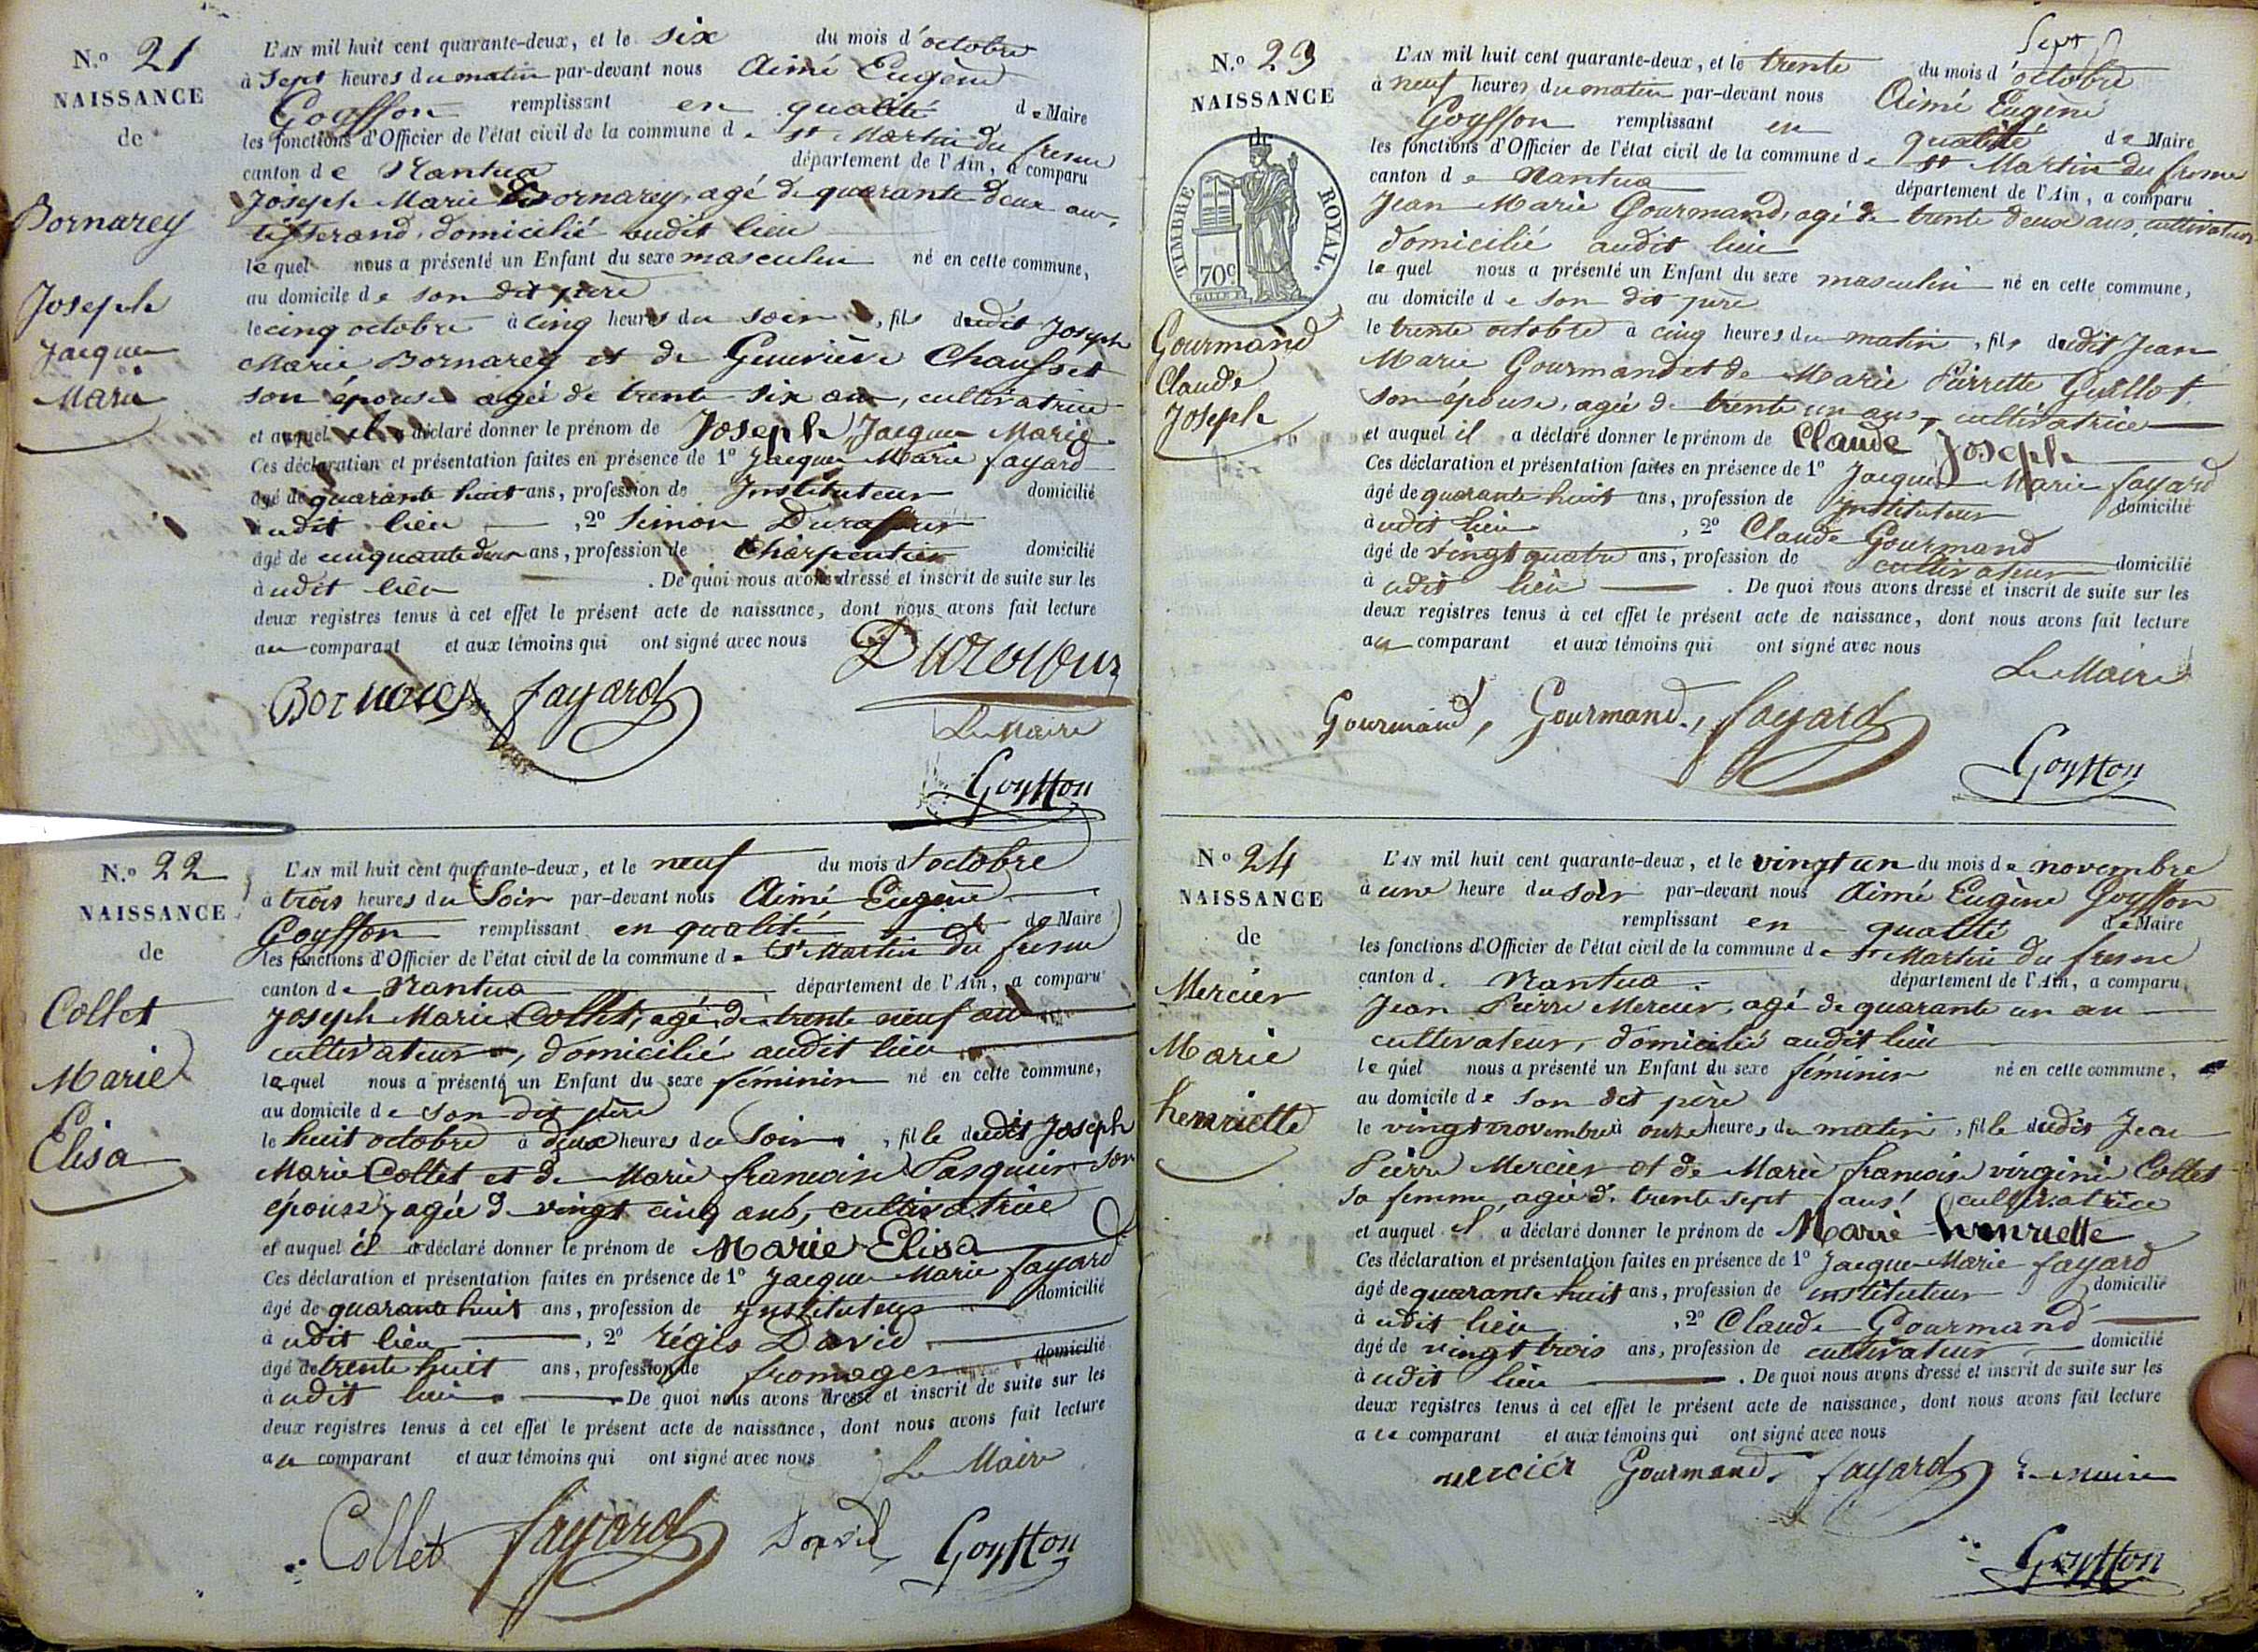 N.º 21
NAISSANCE
de
Bornarey
Joseph
Jacques
Marie
L'AN mil huit cent quarante-deux, et le six du mois d'octobre
à sept heures du matin par-devant nous Aimé Eugène
Goyffon remplissant en qualité de Maire
les fonctions d'Officier de l'état civil de la commune de St Martin du fresne
canton de Nantua département de l'Ain, a comparu
Joseph Marie Bornarey, agé de quarante deux ans,
tisserand, domicilié audit lieu
lequel nous a présenté un Enfant du sexe masculin né en cette commune,
au domicile de son dit père
le cinq octobre à cinq heures du soir, fils dudit Joseph
Marie Bornarey et de Geneviève Chausset
son épouse agée de trente six ans, cultivatrice
et auquel il a déclaré donner le prénom de Joseph Jacques Marie
Ces déclaration et présentation faites en présence de 1º Jacques Marie fayard
âgé de quarante huit ans, profession de Instituteur domicilié
audit lieu, 2º Simon Durafour
âgé de cinquante deux ans, profession de Charpentier domicilié
à udit lieu. De quoi nous avons dressé et inscrit de suite sur les
deux registres tenus à cet effet le présent acte de naissance, dont nous avons fait lecture
au comparant et aux témoins qui ont signé avec nous
Bornarey fayard
Le Maire
Goyffon
N.º 22
NAISSANCE
de
Collet
Marie
Elisa
L'AN mil huit cent quarante-deux, et le neuf du mois d'octobre
à trois heures du Soir par-devant nous Aimé Eugène
Goyffon remplissant en qualité de Maire
les fonctions d'Officier de l'état civil de la commune de St Martin du fresne
canton de Nantua département de l'Ain, a comparu
Joseph Marie Collet, agé de trente neuf ans
cultivateur, domicilié audit lieu
lequel nous a présenté un Enfant du sexe féminin né en cette commune,
au domicile de son dit père
le huit octobre à deux heures du Soir, fille dudit Joseph
Marie Collet et de Marie francoise Pasquier son
épouse, agée de vingt cinq ans, cultivatrice
et auquel il a déclaré donner le prénom de Marie Elisa
Ces déclaration et présentation faites en présence de 1º Jacques Marie fayard
âgé de quarante huit ans, profession de Instituteur domicilié
à udit lieu, 2º régis David
âgé de trente huit ans, profession de fromager domicilié
à udit lieu. De quoi nous avons dressé et inscrit de suite sur les
deux registres tenus à cet effet le présent acte de naissance, dont nous avons fait lecture
au comparant et aux témoins qui ont signé avec nous
Le Maire
Collet fayard David Goyffon
N.º 23
NAISSANCE
de
TIMBRE ROYAL.
70c
Gourmand
Claude
Joseph
L'AN mil huit cent quarante-deux, et le trente du mois d'octobre
à neuf heures du matin par-devant nous Aimé Eugène
Goyffon remplissant en qualité de Maire
les fonctions d'Officier de l'état civil de la commune de St Martin du fresne
canton de Nantua département de l'Ain, a comparu
Jean Marie Gourmand, agé de trente deux ans, cultivateur
domicilié audit lieu
lequel nous a présenté un Enfant du sexe masculin né en cette commune,
au domicile de son dit père
le trente octobre à cinq heures du matin, fils dudit Jean
Marie Gourmand et de Marie Pierrette Guillot
son épouse, agée de trente un ans, cultivatrice
et auquel il a déclaré donner le prénom de Claude Joseph
Ces déclaration et présentation faites en présence de 1º Jacques Marie fayard
âgé de quarante huit ans, profession de Instituteur domicilié
audit lieu, 2º Claude Gourmand
âgé de vingt quatre ans, profession de cultivateur domicilié
à udit lieu. De quoi nous avons dressé et inscrit de suite sur les
deux registres tenus à cet effet le présent acte de naissance, dont nous avons fait lecture
au comparant et aux témoins qui ont signé avec nous
Le Maire
Gourmand, Gourmand, fayard
Goyffon
N.º 24
NAISSANCE
de
Mercier
Marie
henriette
L'AN mil huit cent quarante-deux, et le vingt un du mois de novembre
à une heure du soir par-devant nous Aimé Eugène Goyffon
remplissant en qualité de Maire
les fonctions d'Officier de l'état civil de la commune de St Martin du fresne
canton d. Nantua. département de l'Ain, a comparu
Jean Pierre Mercier, agé de quarante un an
cultivateur, domicilié audit lieu
lequel nous a présenté un Enfant du sexe féminin né en cette commune,
au domicile de son dit père
le vingt novembre à onze heures du matin, fille dudit Jean
Pierre Mercier et de Marie francoise virginie Collet
sa femme, agée de trente sept ans, cultivatrice
et auquel il a déclaré donner le prénom de Marie henriette
Ces déclaration et présentation faites en présence de 1º Jacques Marie fayard
âgé de quarante huit ans, profession de instituteur domicilié
à udit lieu, 2º Claude Gourmand
âgé de vingt trois ans, profession de cultivateur domicilié
à udit lieu. De quoi nous avons dressé et inscrit de suite sur les
deux registres tenus à cet effet le présent acte de naissance, dont nous avons fait lecture
au comparant et aux témoins qui ont signé avec nous
mercier Gourmand, fayard Le maire
Goyffon